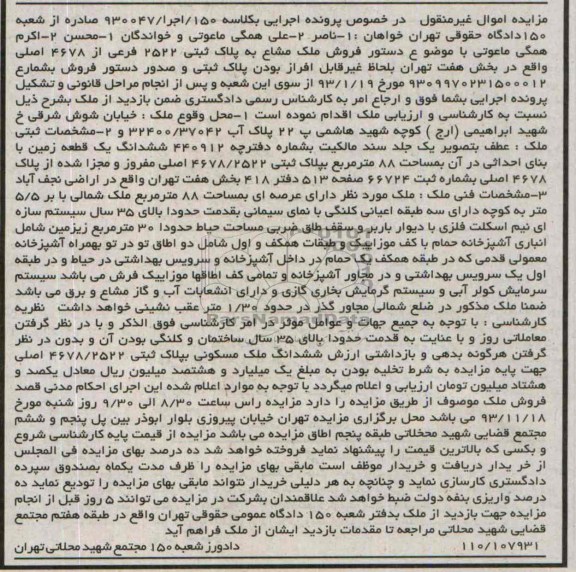 مزایده اموال غیرمنقول در خصوص پرونده اجرایی بکلاسه ۱۵۰/اجرا/۹۳۰۰۴۷ صادره از شعبه
۱۵۰دادگاه حقوقی تهران خواهان :۱-ناصر ۲-علی همگی ماعوتی و خواندگان ۱-محسن ۲-اکرم
همگی ماعوتی با موضوع دستور فروش ملک مشاع به پلاک ثبتی ۲۵۲۲ فرعی از ۴۶۷۸ اصلی
واقع در بخش هفت تهران بلحاظ غیرقابل افراز بودن پلاک ثبتی و صدور دستور فروش بشمارع
۹۳۰۹۹۷۰۲۳۱۵۰۰۰۱۲ مورخ ۹۳/۱/۱۹ از سوی این شعبه و پس از انجام مراحل قانونی و تشکیل
پرونده اجرایی بشما فوق و ارجاع امر به کارشناس رسمی دادگستری ضمن بازدید از ملک بشرح ذیل
نسبت به کارشناسی و ارزیابی ملک اقدام نموده است ۱-محل وقوع ملک : خیابان شوش شرقی خ
شهید ابراهیمی (ارج ) کوچه شهید هاشمی پ ۲۲ پلاک آب ۳۲۴۰۰/۳۷۰۴۲ و ۲-مشخصات ثبتی
ملک : عطف بتصویر یک جلد سند مالکیت بشماره دفترچه ۴۴۰۹۱۲ ششدانگ یک قطعه زمین با
بنای احداثی در آن بمساحت ۸۸ مترمربع بپلاک ثبتی ۴۶۷۸/۲۵۲۲ اصلی مفروز و مجزا شده از پلاک
۴۶۷۸ اصلی بشماره ثبت ۶۶۷۲۴ صفحه ۵۱۳ دفتر ۴۱۸ بخش هفت تهران واقع در اراضی نجف آباد
۳-مشخصات فنی ملک : ملک مورد نظر دارای عرصه ای بمساحت ۸۸ مترمربع ملک شمالی با بر ۵/۵
متر به کوچه دارای سه طبقه اعیانی کلنگی با نمای سیمانی بقدمت حدودا بالای ۳۵ سال سیستم سازه
ای نیم اسکلت فلزی با دیوار باربر سقف طاق ضربی مساحت حیاط حدودا ۳۰ مترمربع زیرزمین شامل
انباری آشپزخانه حمام با کف موزاییک و طبقات همکف و اول شامل دو اطاق تو در تو بهمراه آشپزخانه
معمولی قدمی که در طبقه همکف یک حمام در داخل آشپزخانه و سرویس بهداشتی در حیاط و در طبقه
اول یک سرویس بهداشتی و در مجاور آشپزخانه و تمامی کف اطاقها موزاییک فرش می باشد سیستم
سرمایش کولر آبی و سیستم گرمایش بخاری گازی و دارای انشعابات آب و گاز مشاع و برق می باشد
ضمنا ملک مذکور در ضلع شمالی مجاور گذر در حدود ۱/۳۰ متر عقب نشینی خواهد داشت نظریه
کارشناسی : با توجه به جمیع جهات و عوامل موثر در امر کارشناسی فوق الذکر و با در نظر گرفتن
معاملاتی روز و با عنایت به قدمت حدودا بالای ۳۵ سال ساختمان و کلنگی بودن آن و بدون در نظر
گرفتن هرگونه بدهی و بازداشتی ارزش ششدانگ ملک مسکونی بپلاک ثبتی ۴۶۷۸/۲۵۲۲ اصلی
جهت پایه مزایده به شرط تخلیه بودن به مبلغ یک میلیارد و هشتصد میلیون ریال معادل یکصد و
هشتاد میلیون تومان ارزیابی و اعلام میگردد با توجه به موارد اعلام شده این اجرای احکام مدنی قصد
فروش ملک موصوف از طریق مزایده را دارد مزایده راس ساعت ۸/۳۰ الی ۹/۳۰ روز شنبه مورخ
۹۳/۱۱/۱۸ می باشد محل برگزاری مزایده تهران خیابان پیروزی بلوار ابوذر بین پل پنجم و ششم
مجتمع قضایی شهید محخلاتی طبقه پنجم اطاق مزایده می باشد مزایده از قیمت پایه کارشناسی شروع
و بکسی که بالاترین قیمت را پیشنهاد نماید فروخته خواهد شد ده درصد بهای مزایده فی المجلس
از خر یدار دریافت و خریدار موظف است مابقی بهای مزایده را ظرف مدت یکماه بصندوق سپرده
دادگستری کارسازی نماید و چنانچه به هر دلیلی خریدار نتواند مابقی بهای مزایده را تودیع نماید ده
درصد واریزی بنفه دولت ضبط خواهد شد علاقمندان بشرکت در مزایده می توانند ۵ روز قبل از انجام
مزایده جهت بازدید از ملک بدفتر شعبه ۱۵۰ دادگاه عمومی حقوقی تهران واقع در طبقه هفتم مجتمع
قضایی شهید محلاتی مراجعه تا مقدمات بازدید ایشان از ملک فراهم آید
۱۱۰/۱۰۷۹۳۱ دادورز شعبه ۱۵۰ مجتمع شهید محلاتی تهران